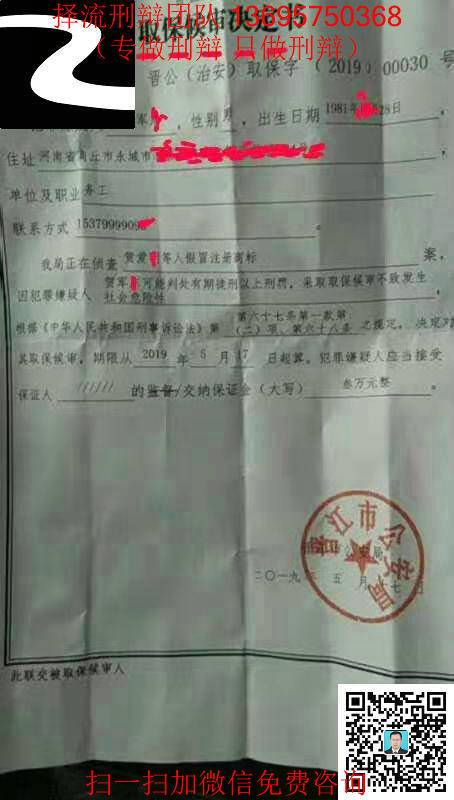 择流刑辩团队:13695750368
取保候审决定书
（专做刑辩 只做刑辩）
晋公（治安）取保字（2019）00030 号
军 ，性别 男 ，出生日期 1981年 28日 ，
住址 河南省商丘市永城市 ，
单位及职业 务工
联系方式 1537999909 。
我局正在侦查 贺发 等人假冒注册商标 案，
因犯罪嫌疑人 贺军 可能判处有期徒刑以上刑罚，采取取保候审不致发生社会危险性
根据《中华人民共和国刑事诉讼法》第 六十七条第一款第（二）项、第六十八条 之规定，决定对
其取保候审，期限从 2019 年 5 月 17 日起算。犯罪嫌疑人应当接受
保证人 ////// 的监督/交纳保证金（大写） 叁万元整 。
晋江市公安局
二〇一九年 五 月 七
此联交被取保候审人
扫一扫加微信免费咨询